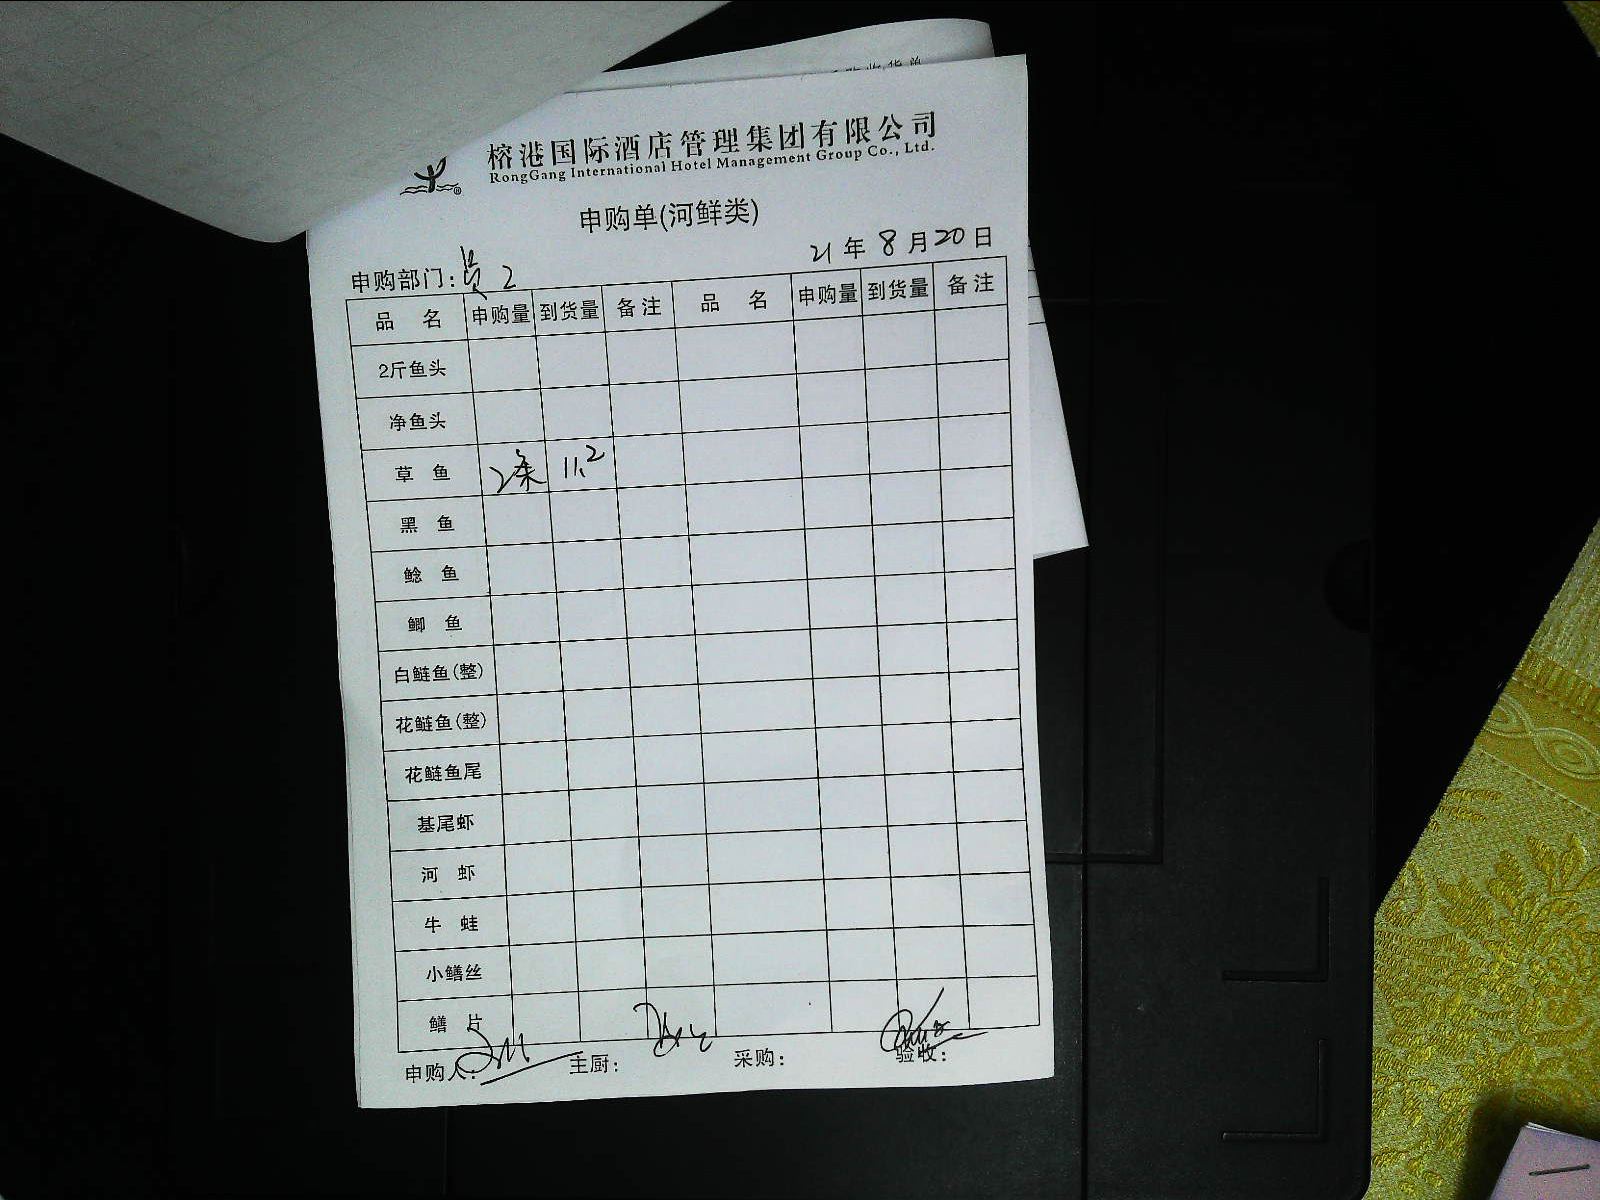 榕港国际酒店管理集团有限公司
RongGang International Hotel Management Group Co., Ltd.
申购单(河鲜类)
21年8月20日
申购部门: 2
品 名 申购量 到货量 备注 品 名 申购量 到货量 备注
2斤鱼头
净鱼头
草 鱼 2条 11.2
黑 鱼
鲶 鱼
鲫 鱼
白鲢鱼(整)
花鲢鱼(整)
花鲢鱼尾
基尾虾
河 虾
牛 蛙
小鳝丝
鳝 片
申购人: 主厨: 采购: 验收: